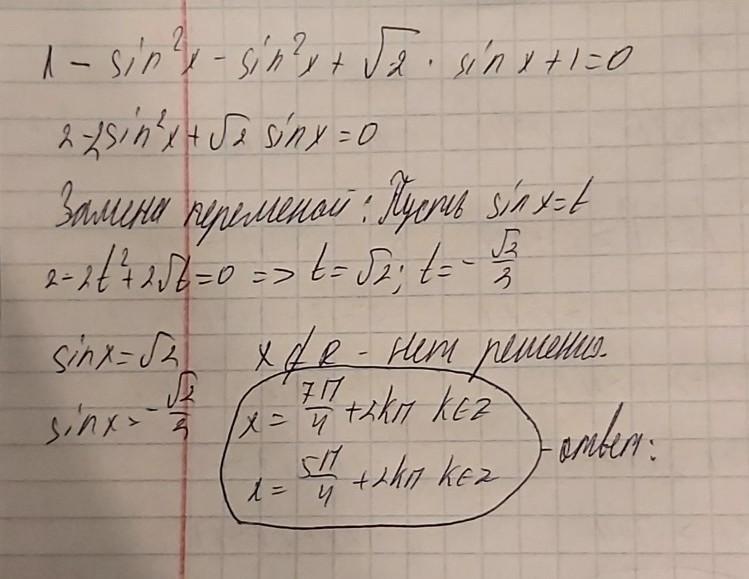 1 - sin²x - sin²x + √2 · sin x + 1 = 0
2 - 2sin²x + √2 sinx = 0
Замена переменой: Пусть sinx = t
2 - 2t² + 2√t = 0 => t = √2; t = - √2/2
sinx = √2 x ∉ R - нет решения.
sinx = - √2/2 x = 7П/4 + 2kП k∈Z
x = 5П/4 + 2kП k∈Z - ответ: